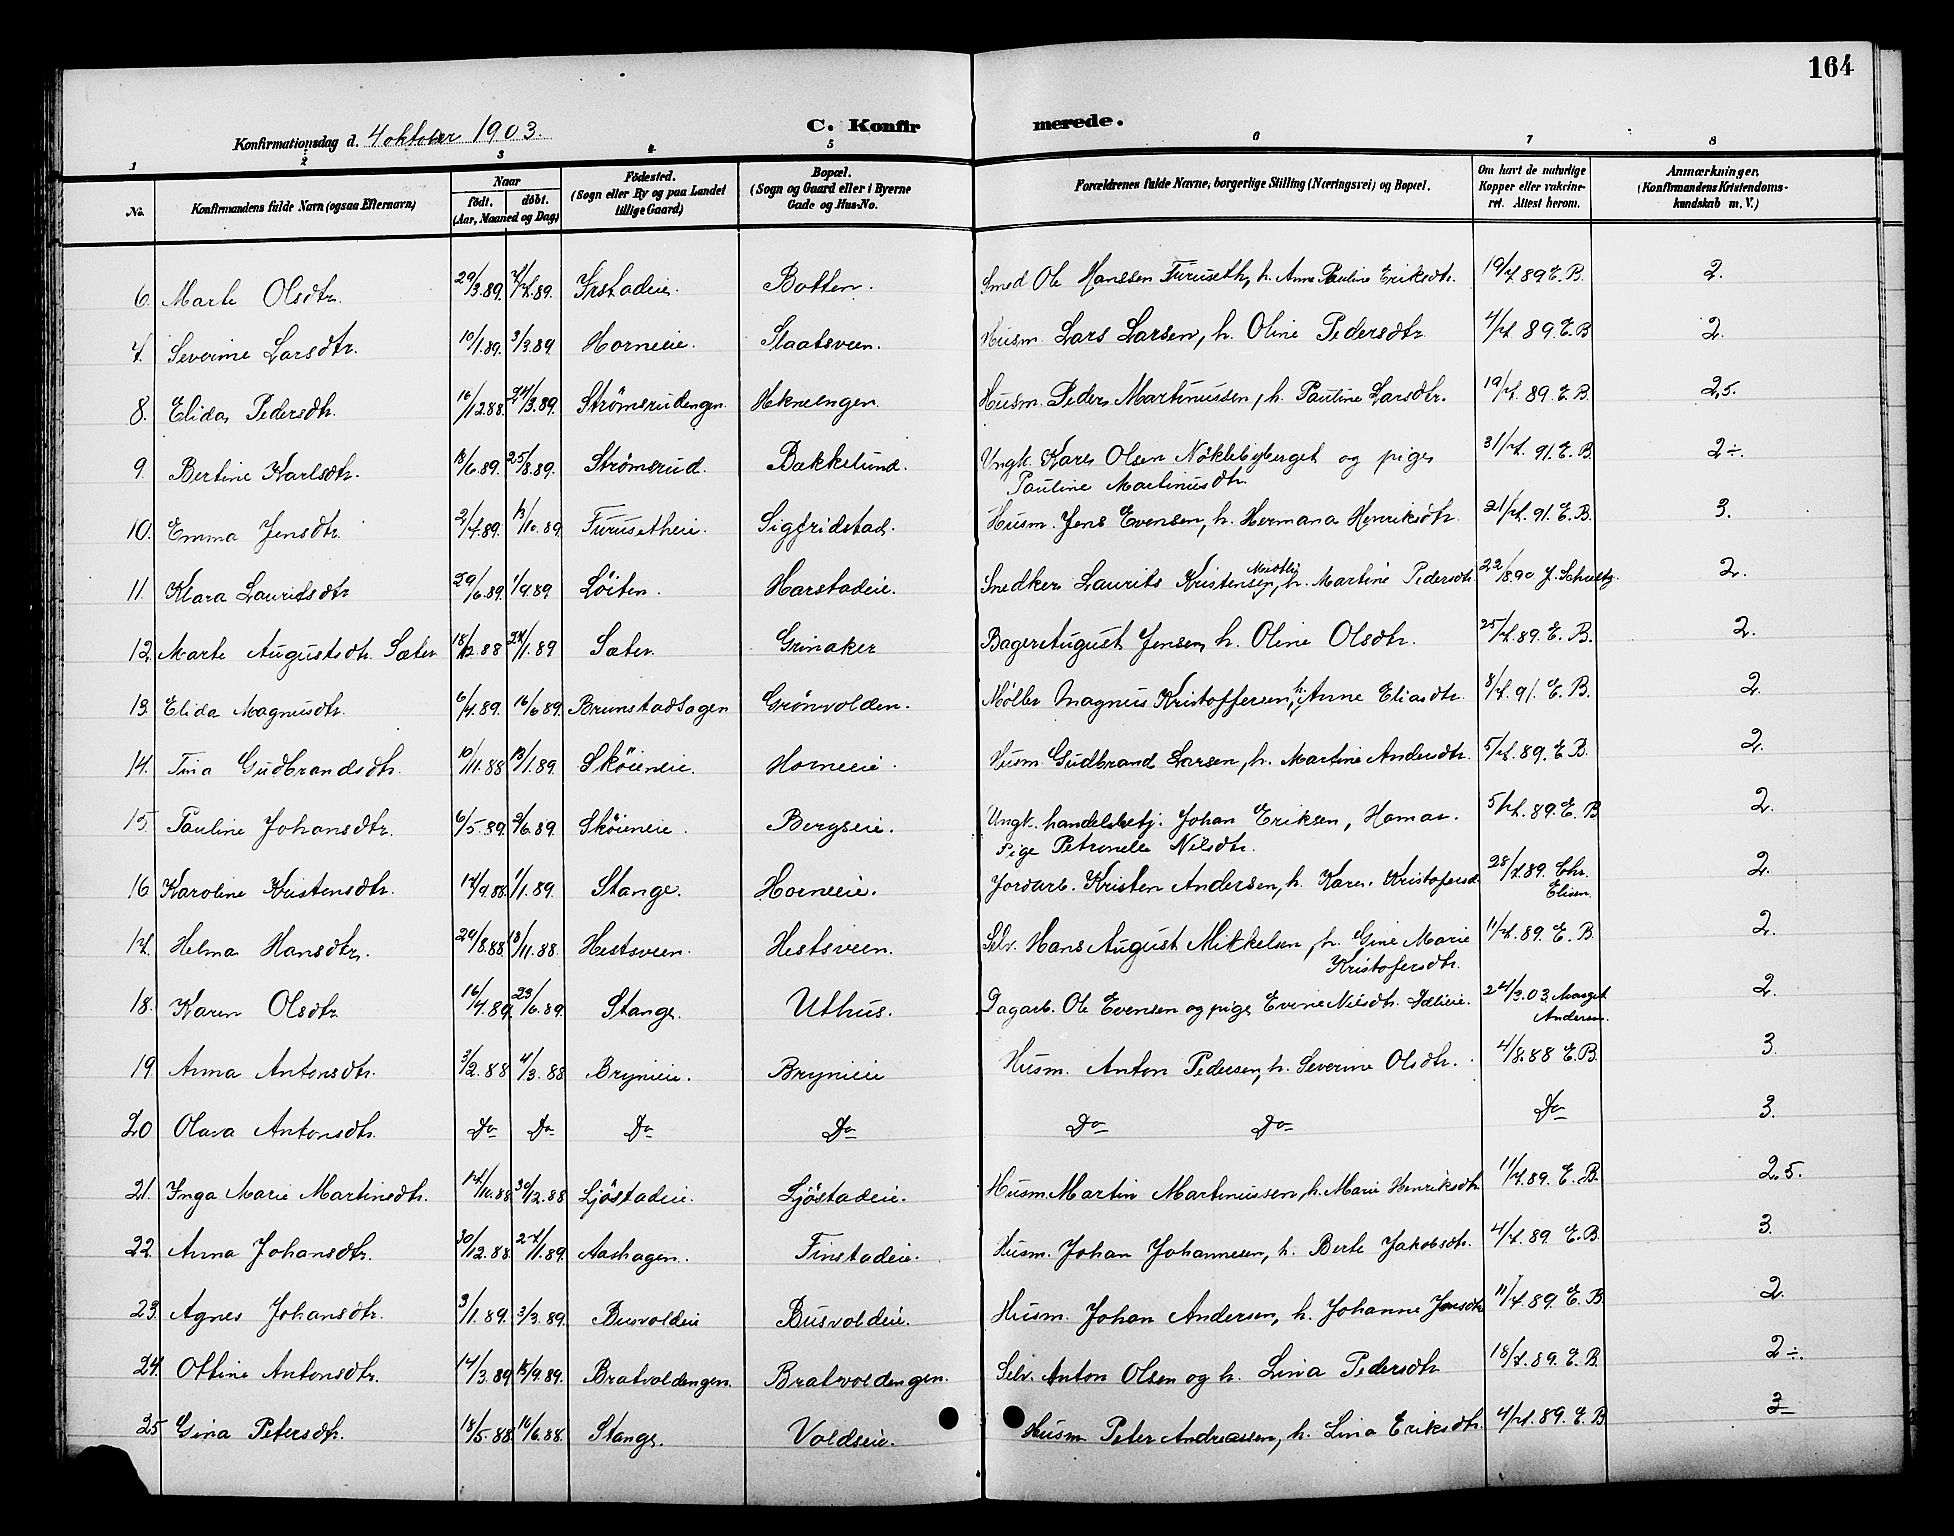 164
Konfirmationsdag d. 4 oktober 1903.
C. Konfir merede.
1 2 3 4 5 6 7 8
No. Konfirmandens fulde Navn (ogsaa Efternavn) Naar født. døbt. (Aar, Maaned og Dag) Fødested. (Sogn eller By og paa Landet tillige Gaard) Bopæl. (Sogn og Gaard eller i Byerne Gade og Hus-No. Forældrenes fulde Navne, borgerlige Stilling (Næringsvei) og Bopæl. Om havt de naturlige Kopper eller vakcineret. Attest herom. Anmærkninger. (Konfirmandens Kristendomskundskab m. V.)
6. Marte Olsdtr. 29/3.89. Botten. Smed Ole Hanssen Furuseth, h. Anne Pauline Eriksdtr. 19/7.89 E.B. 2.
7. Severine Larsdtr. 10/1.89. 3/3.89 Horneeie. Staatsveen. Husm. Lars Larsen, h. Oline Pedersdtr 4/7.89. E.B 2.
8. Elida Pedersdtr. 16/12.88. 24/3.89. Strömsrudengen. Hekneengen. Husm. Peder Martinussen, h. Pauline Larsdtr. 19/7.89. E.B. 2,5.
9. Bertine Karlsdtr. 18/6.89. 25/8.89. Strömsrud. Bækkelund. Ungk. Karl Olsen Nöklebyberget og pige 31/7.91. E.B. 2÷.
Pauline Martinusdtr.
10. Emma Jensdtr. 13/10.89. Furusetheie. Sigfridstad. Husm. Jens Evensen, h. Hermana Henriksdtr. 21/7.91. E.B. 3.
11. Klara Lauritsdtr 29/6.89. 1/9.89 Löiten. Harstadeie. Snedker Laurits Kristensen, h. Martine Pedersdtr. 22/8.90 J. Schultz. 2.
12. Marte Augustsdtr. Sæter 18/12.88 27/1.89 Sæter. Grinaker Bager August Jensen, h. Oline Olsdtr. 25/7.89. E.B. 2.
13. Elida Magnusdtr. 16/6.89. Brunstadhagen Grönvolden. Møller Magnus Kristoffersen, h. Anne Eliasdtr. 8/7.91. E.B. 2.
14. Tina Gudbrandsdtr. 10/11.88 13/1.89. Sköieneie. Horneeie. Husm Gudbrand Larsen, h. Martine Andersdtr. 5/7.89. E.B. 2.
15. Pauline Johansdtr. 6/5.89. 2/6.89. Sköieneie. Bergseie. Ungk. handelsbetj. Johan Eriksen, Hamar. 5/7.89. E.B 2.
Pige Petronelle Nilsdtr.
16 Karoline Kristensdtr. 17/9.88. 1/1.89. Stange. Horneeie. Jordarb. Kristen Andersen, h. Karen Kristofersd. 28/7.89. Chr. 2.
Elisen.
17. Helma Hansdtr. 29/8.88. 18/11.88. Hestsveen. Hestsveen. Selv. Hans August Mikkelsen, h. Gine Marie 11/7.89. E.B. 2.
Kristofersdtr.
18. Karen Olsdtr 16/4.89. 23/6.89. Stange. Uthus. Dagarb. Ole Evensen og pige Evine Nilsdtr. 24/3.03. Marget 2.
Andersen.
19 Anna Antonsdtr. 3/2.88 4/3.88 Brynieie. Brynieie Husm. Anton Pedersen, h. Severine Olsdtr. 4/8.88 E.B. 3.
20 Olava Antonsdtr. Do Do Do Do Do Do Do 3.
21. Inga Marie Martinsdtr. 17/10.88 30/12.88 Ljöstadeie. Ljöstadeie. Husm. Martin Martinussen, h. Marie Henriksdtr 11/7.89. E.B. 2.5.
22. Anna Johansdtr. 30/12.88. 27/1.89. Aashagen. Finstadeie. Husm. Johan Johannesen, h. Berte Jakobsdtr. 4/7.89. E.B. 3.
23. Agnes Johansdtr. 3/1.89. 3/3.89. Busvoldeie Busvoldeie. Husm. Johan Andersen, h. Johanne Jensdtr 11/7.89. E.B. 2.
24. Ottine Antonsdtr. 14/3.89 Bratvoldengen. Bratvoldengen. Selv. Anton Olsen og h. Lina Pedersdtr 18/7.89. E.B. 2÷.
25 Gina Petersdtr. 18/5.88 16/6.88. Stange. Voldseie. Husm Peter Andreassen, h. Lina Eriksdtr. 4/7.89. E.B 3